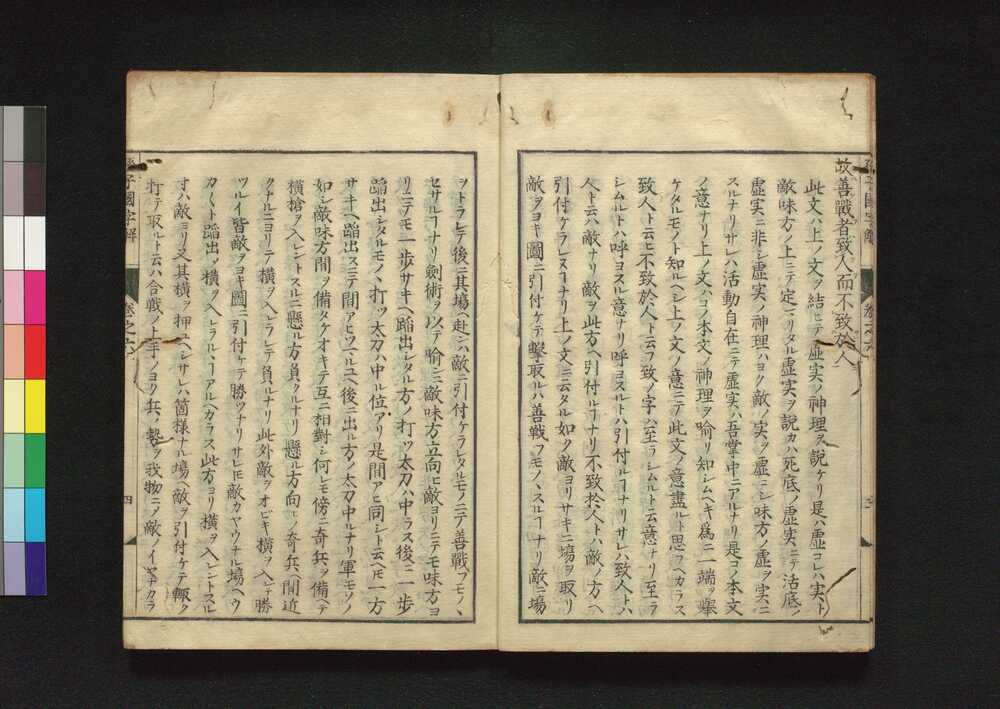 故善戰者致人而不致於人
此文ハ上ノ文ヲ結ヒテ虚実ノ神理ヲ説ケリ是ハ虚コレハ実ト
敵味方ノ上ニテ定マリタル虚実ヲ説カハ死底ノ虚実ニテ活底ノ
虚実ニ非シ虚実ノ神理ハヨク敵ノ実ヲ虚ニシ味方ノ虚ヲ実ニ
スルナリサレハ活動自在ニテ虚実ハ吾掌中ニアルナリ是コノ本文
ノ意ナリ上ノ文ハコノ本文ノ神理ヲ喩リ知シムヘキ爲ニ一端ヲ挙
ケタルモノト知ルヘシ上ノ文ノ意ニテ此文ノ意盡ルト思フヘカラス
致人ト云ヒ不致於人ト云フ致ノ字ハ至ラシムルト云意ナリ至ラ
シムルトハ呼ヨスル意ナリ呼ヨスルトハ引付ルヿナリサレハ致人トハ
人ト云ハ敵ナリ敵ヲ此方ヘ引付ルヿナリ不致於人トハ敵ノ方ヘ
引付ケラレヌヿナリ上ノ文ニ云タル如ク敵ヨリサキニ場ヲ取リ
敵ヲヨキ圖ニ引付ケテ擊取ルハ善戰フモノヽスルヿナリ敵ニ場
ヲトラレテ後ニ其場ヘ赴シハ敵ニ引付ケラレタルモノニテ善戰フモノヽ
セサルヿナリ劍術ヲ以テ喩ニ敵味方立向ヒ敵ヨリニテモ味方ヨ
リニテモ一歩サキヘ踏出シタル方ノ打ツ太刀ハ中ラス後ニ一歩
踏出シタルモノヽ打ツ太刀ハ中ル位アリ是間アヒ同シト云ヘトモ一方
サキヘ踏出スニテ間アヒツヽルユヘ後ニ出ル方ノ太刀中ルナリ軍モソノ
如シ敵味方間ヲ備タケオキテ互ニ相對シ何レモ傍ニ奇兵ヲ備ヘテ
横槍ヲ入レントスルニ懸ル方負クルナリ懸ル方向ヒノ奇兵ヘ間近
クナルニヨリテ横ヲ入ラレテ負ルナリ此外敵ヲオビキ横ヲ入レテ勝
ツルイ皆敵ヲヨキ圖ニ引付ケテ勝ツナリサレトモ敵カヤウナル場ヘウ
カ〱ト踏出ノ横ヲ入レラルヽヿアルヘカラス此方ヨリ横ヲ入レントスレ
ハ敵ヨリ又其横ヲ押ユヘシサレハ箇様ナル場ヘ敵ヲ引付ケテ輙ク
打テ取ルト云ハ合戰ノ上手ノヨク兵ノ勢ヲ我物ニノ敵ノイヤナカラ
孫子國字解
卷之六
四